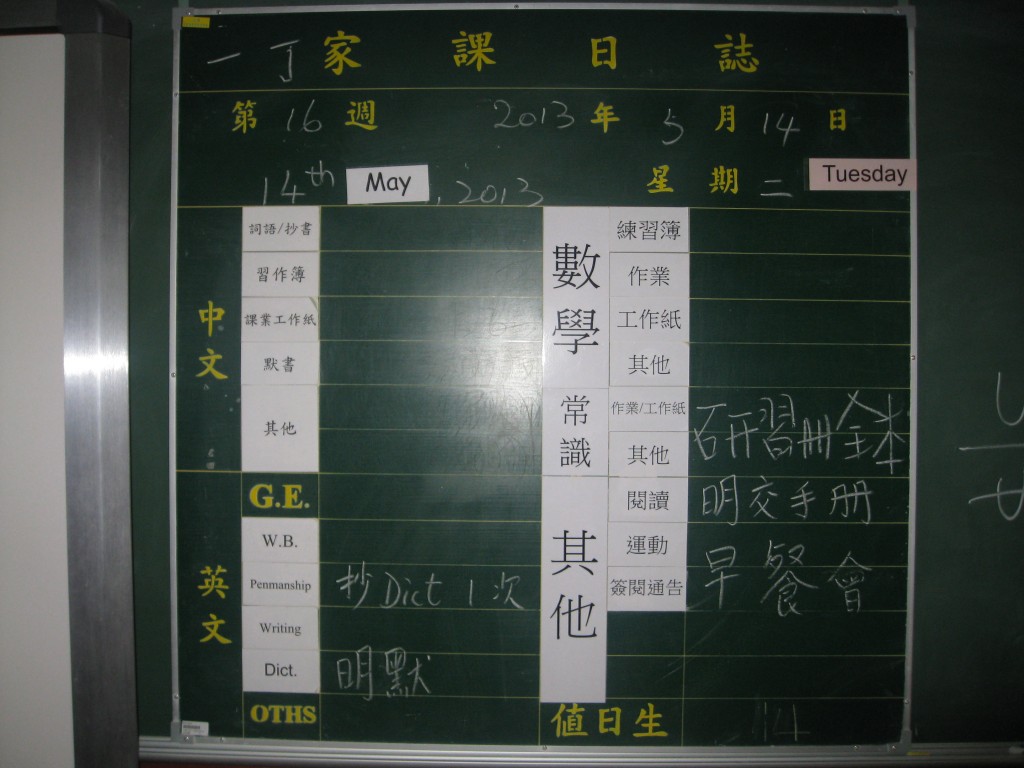 一丁家課日誌
第16週 2013年5月14日
14th May, 2013 星期二 Tuesday
中文
詞語/抄書
習作簿
課業工作紙
默書
其他
英文
G.E.
W.B.
Penmanship 抄Dict 1次
Writing
Dict. 明默
OTHS
數學
練習簿
作業
工作紙
其他
常識
作業/工作紙
其他
研習冊全本
其他
閱讀 明交手册
運動
簽閱通告
早餐會
值日生 14